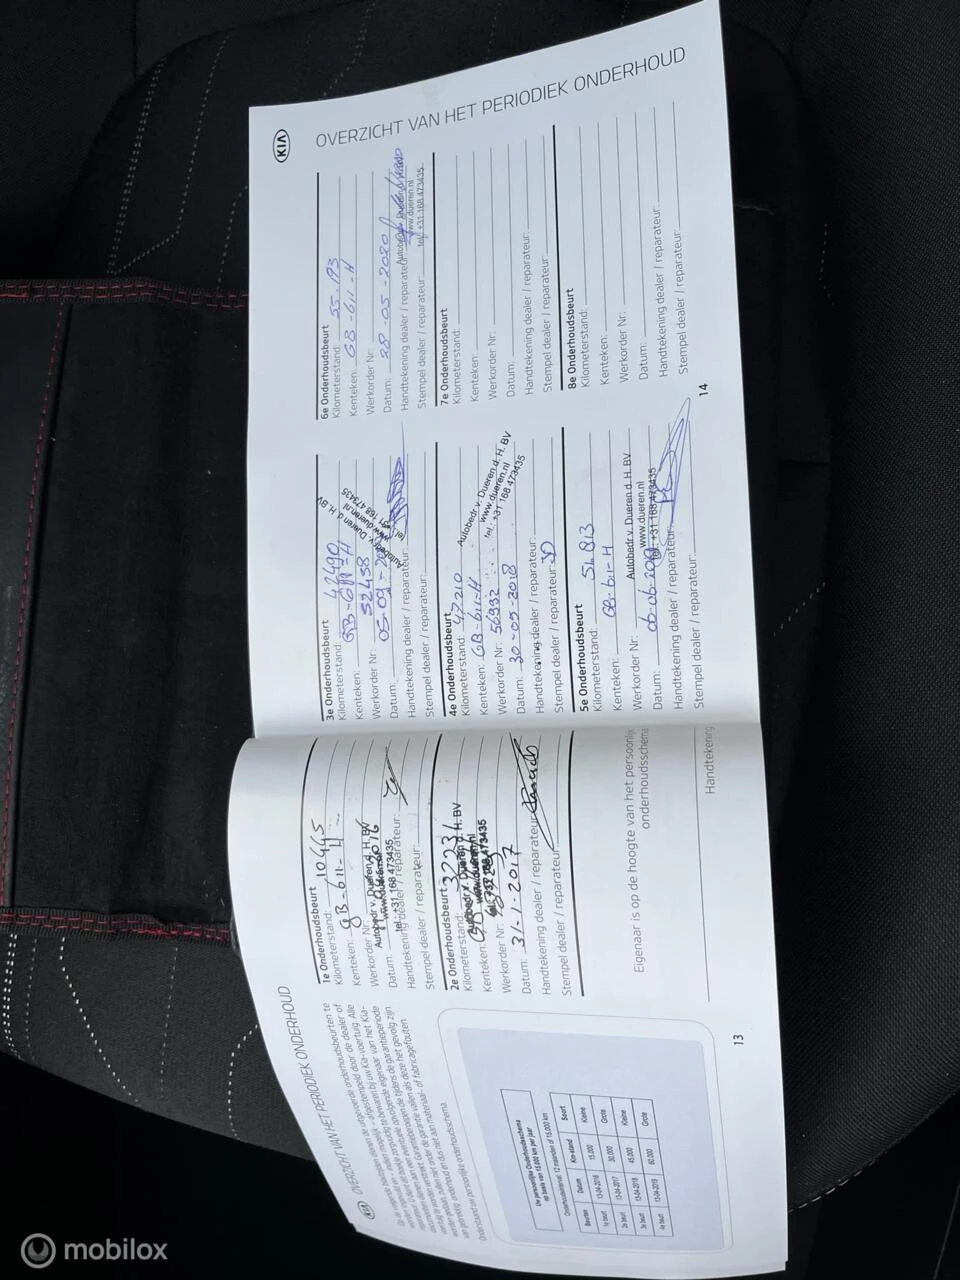 KIA
OVERZICHT VAN HET PERIODIEK ONDERHOUD
Op de volgende bladzijden dienen de uitgevoerde onderhoudsbeurten te
Onderstaand uw persoonlijke onderhoudsschema
Uw persoonlijke Onderhoudsschema
op basis van 15.000 km per jaar
Onderhoudsinterval: 12 maanden of 15.000 km
Beurten Datum Km-stand Soort
1e beurt 13-04-2016 15.000 Kleine
2e beurt 13-04-2017 30.000 Grote
3e beurt 13-04-2018 45.000 Kleine
4e beurt 13-04-2019 60.000 Grote
1e Onderhoudsbeurt
Kilometerstand: 10445
Kenteken: GB-611-H
Werkorder Nr:
Autobedr v. Dueren d. H. BV
Datum:
www.dueren.nl
tel.: +31 168 473435
Handtekening dealer / reparateur:
Stempel dealer / reparateur:
2e Onderhoudsbeurt
Kilometerstand: 32231
Autobedr v. Dueren d. H. BV
Kenteken:
www.dueren.nl
Werkorder Nr:
tel.: +31 168 473435
Datum: 31-1-2017
Handtekening dealer / reparateur:
Stempel dealer / reparateur:
Eigenaar is op de hoogte van het persoonlijk
onderhoudsschema
Handtekening
13
3e Onderhoudsbeurt
Kilometerstand: 42490
Kenteken: GB-611-H
Werkorder Nr: 52458
Datum: 05-09-
Autobedr v. Dueren d. H. BV
www.dueren.nl
tel.: +31 168 473435
Handtekening dealer / reparateur:
Stempel dealer / reparateur:
4e Onderhoudsbeurt
Kilometerstand: 47210
Kenteken: GB-611-H
Werkorder Nr: 56992
Datum: 30-05-2018
Autobedr v. Dueren d. H. BV
www.dueren.nl
tel.: +31 168 473435
Handtekening dealer / reparateur:
Stempel dealer / reparateur:
5e Onderhoudsbeurt
Kilometerstand: 51.813
Kenteken: GB-611-H
Werkorder Nr:
Autobedr v. Dueren d. H. BV
Datum: 06-06-2019
www.dueren.nl
tel.: +31 168 473435
Handtekening dealer / reparateur:
Stempel dealer / reparateur:
KIA
OVERZICHT VAN HET PERIODIEK ONDERHOUD
6e Onderhoudsbeurt
Kilometerstand: 55.193
Kenteken: GB-611-H
Werkorder Nr:
Datum: 28-05-2020
Autobedr v. Dueren d. H. BV
Handtekening dealer / reparateur:
www.dueren.nl
Stempel dealer / reparateur:
tel.: +31 168 473435
7e Onderhoudsbeurt
Kilometerstand:
Kenteken:
Werkorder Nr:
Datum:
Handtekening dealer / reparateur:
Stempel dealer / reparateur:
8e Onderhoudsbeurt
Kilometerstand:
Kenteken:
Werkorder Nr:
Datum:
Handtekening dealer / reparateur:
Stempel dealer / reparateur:
14
mobilox